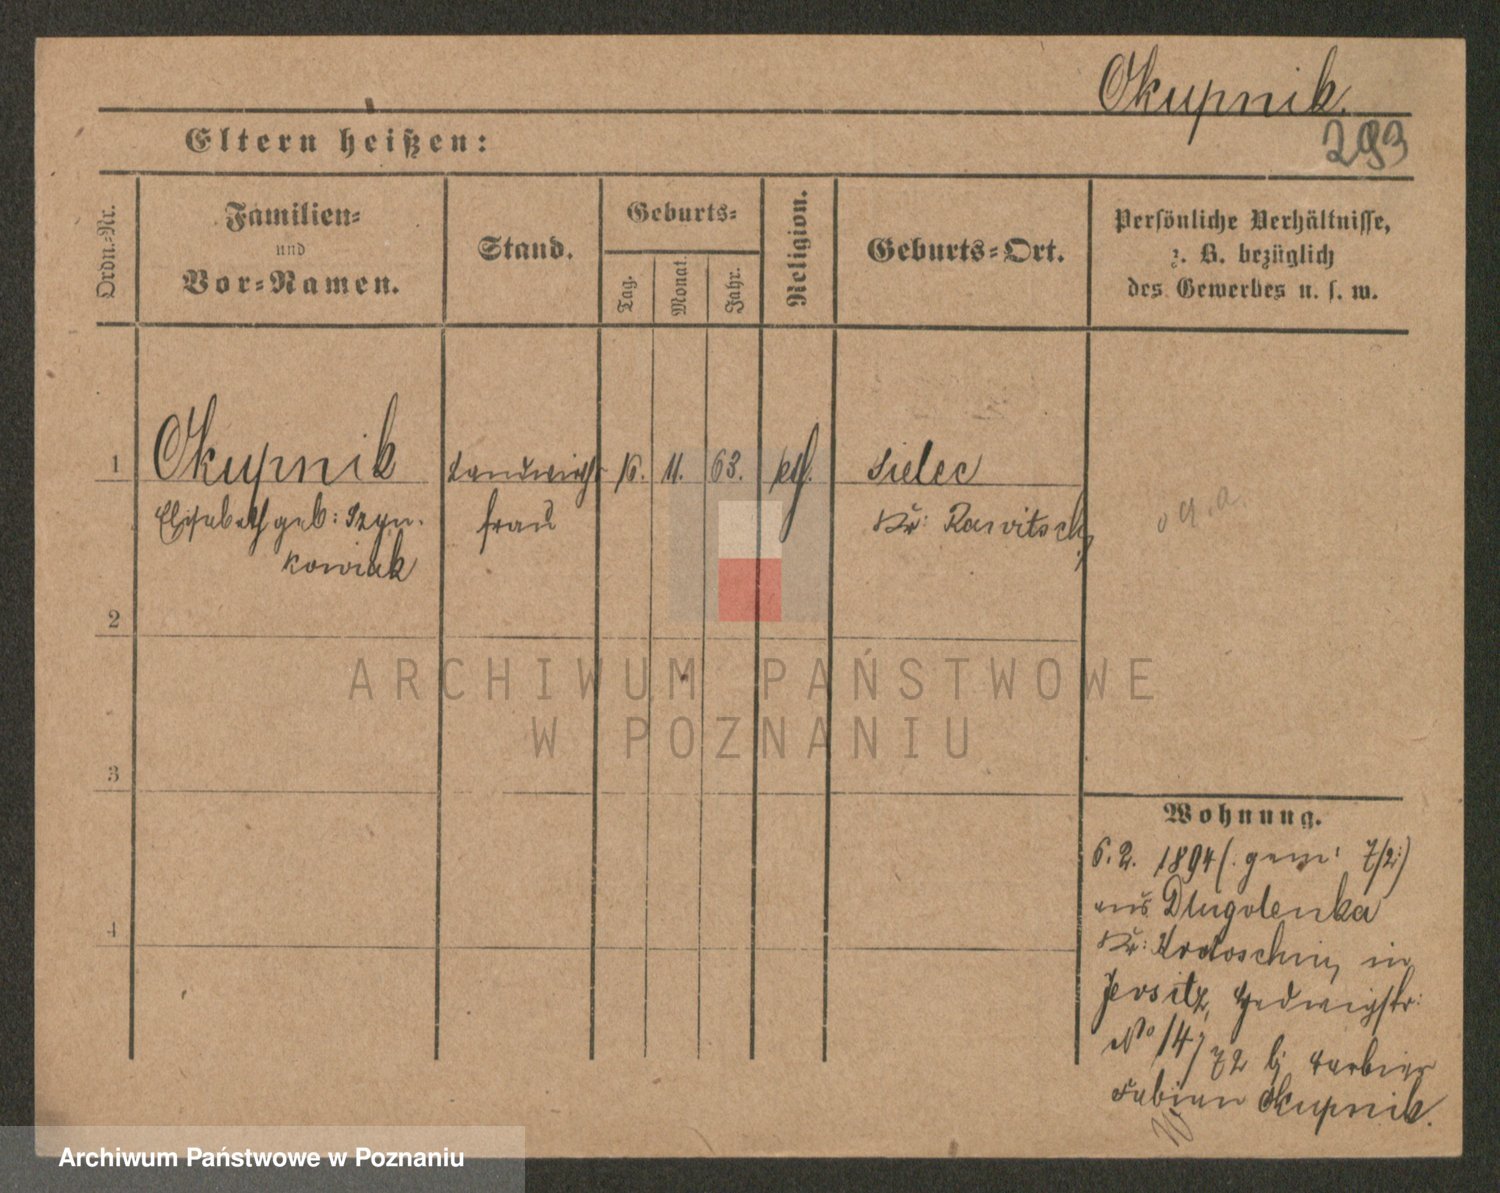 Okupnik
293
Eltern heißen:
Ordn.-Nr.
Familien-
und
Vor-Namen.
Stand.
Geburts-
Tag.
Monat.
Jahr.
Religion.
Geburts-Ort.
Persönliche Verhältnisse,
z. B. bezüglich
des Gewerbes u. s. w.
1
Okupnik
Landwirths
16. 11. 63.
kth.
Sielec
Elisabeth geb: Szym-
frau
Kr: Rawitsch
kowiak
2
ARCHIWUM PAŃSTWOWE
W POZNANIU
3
Wohnung.
6. 2. 1894 (: gem: 7/2:)
aus Dlugolenka
4
Kr: Krotoschin, in
Jersitz, Hedwigstr:
No 14/72 bj Barbier
Fabian Okupnik.
Archiwum Państwowe w Poznaniu